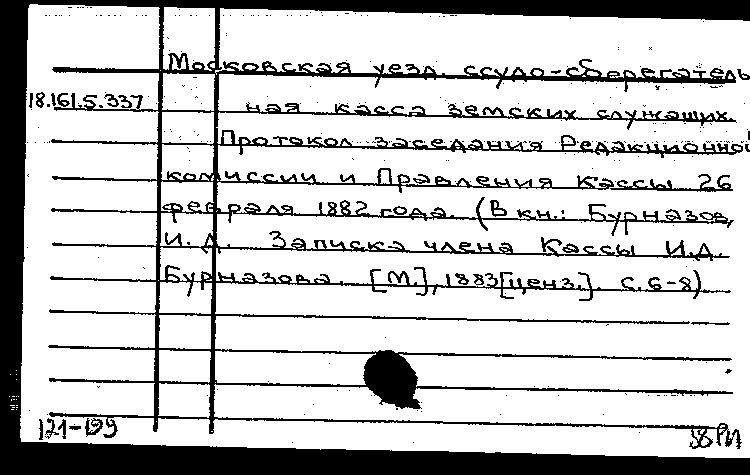 Московская уезд. ссудо-сберегатель
18.161.5.337 ная касса земских служащих.
Протокол заседания Редакционной
комиссии и Правления Кассы 26
февраля 1882 года. (В кн.: Бурназов,
И. Д. Записка члена Кассы И.Д.
Бурназова. [М.], 1883 [ценз.]. С. 6-8)
121-199